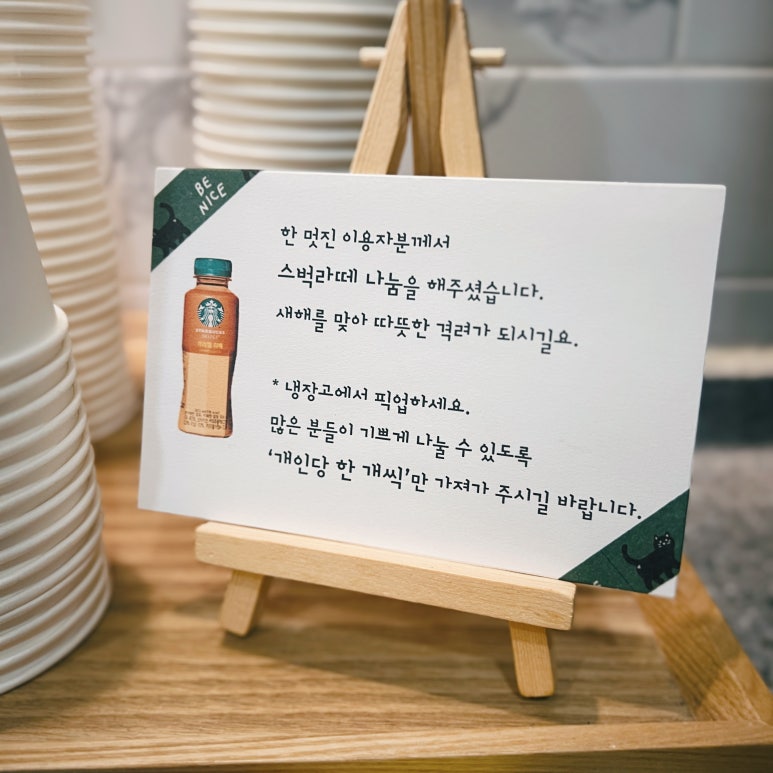 BE
NICE
한 멋진 이용자분께서
스벅라떼 나눔을 해주셨습니다.
새해를 맞아 따뜻한 격려가 되시길요.
STARBUCKS
* 냉장고에서 픽업하세요.
많은 분들이 기쁘게 나눌 수 있도록
‘개인당 한 개씩’만 가져가 주시길 바랍니다.